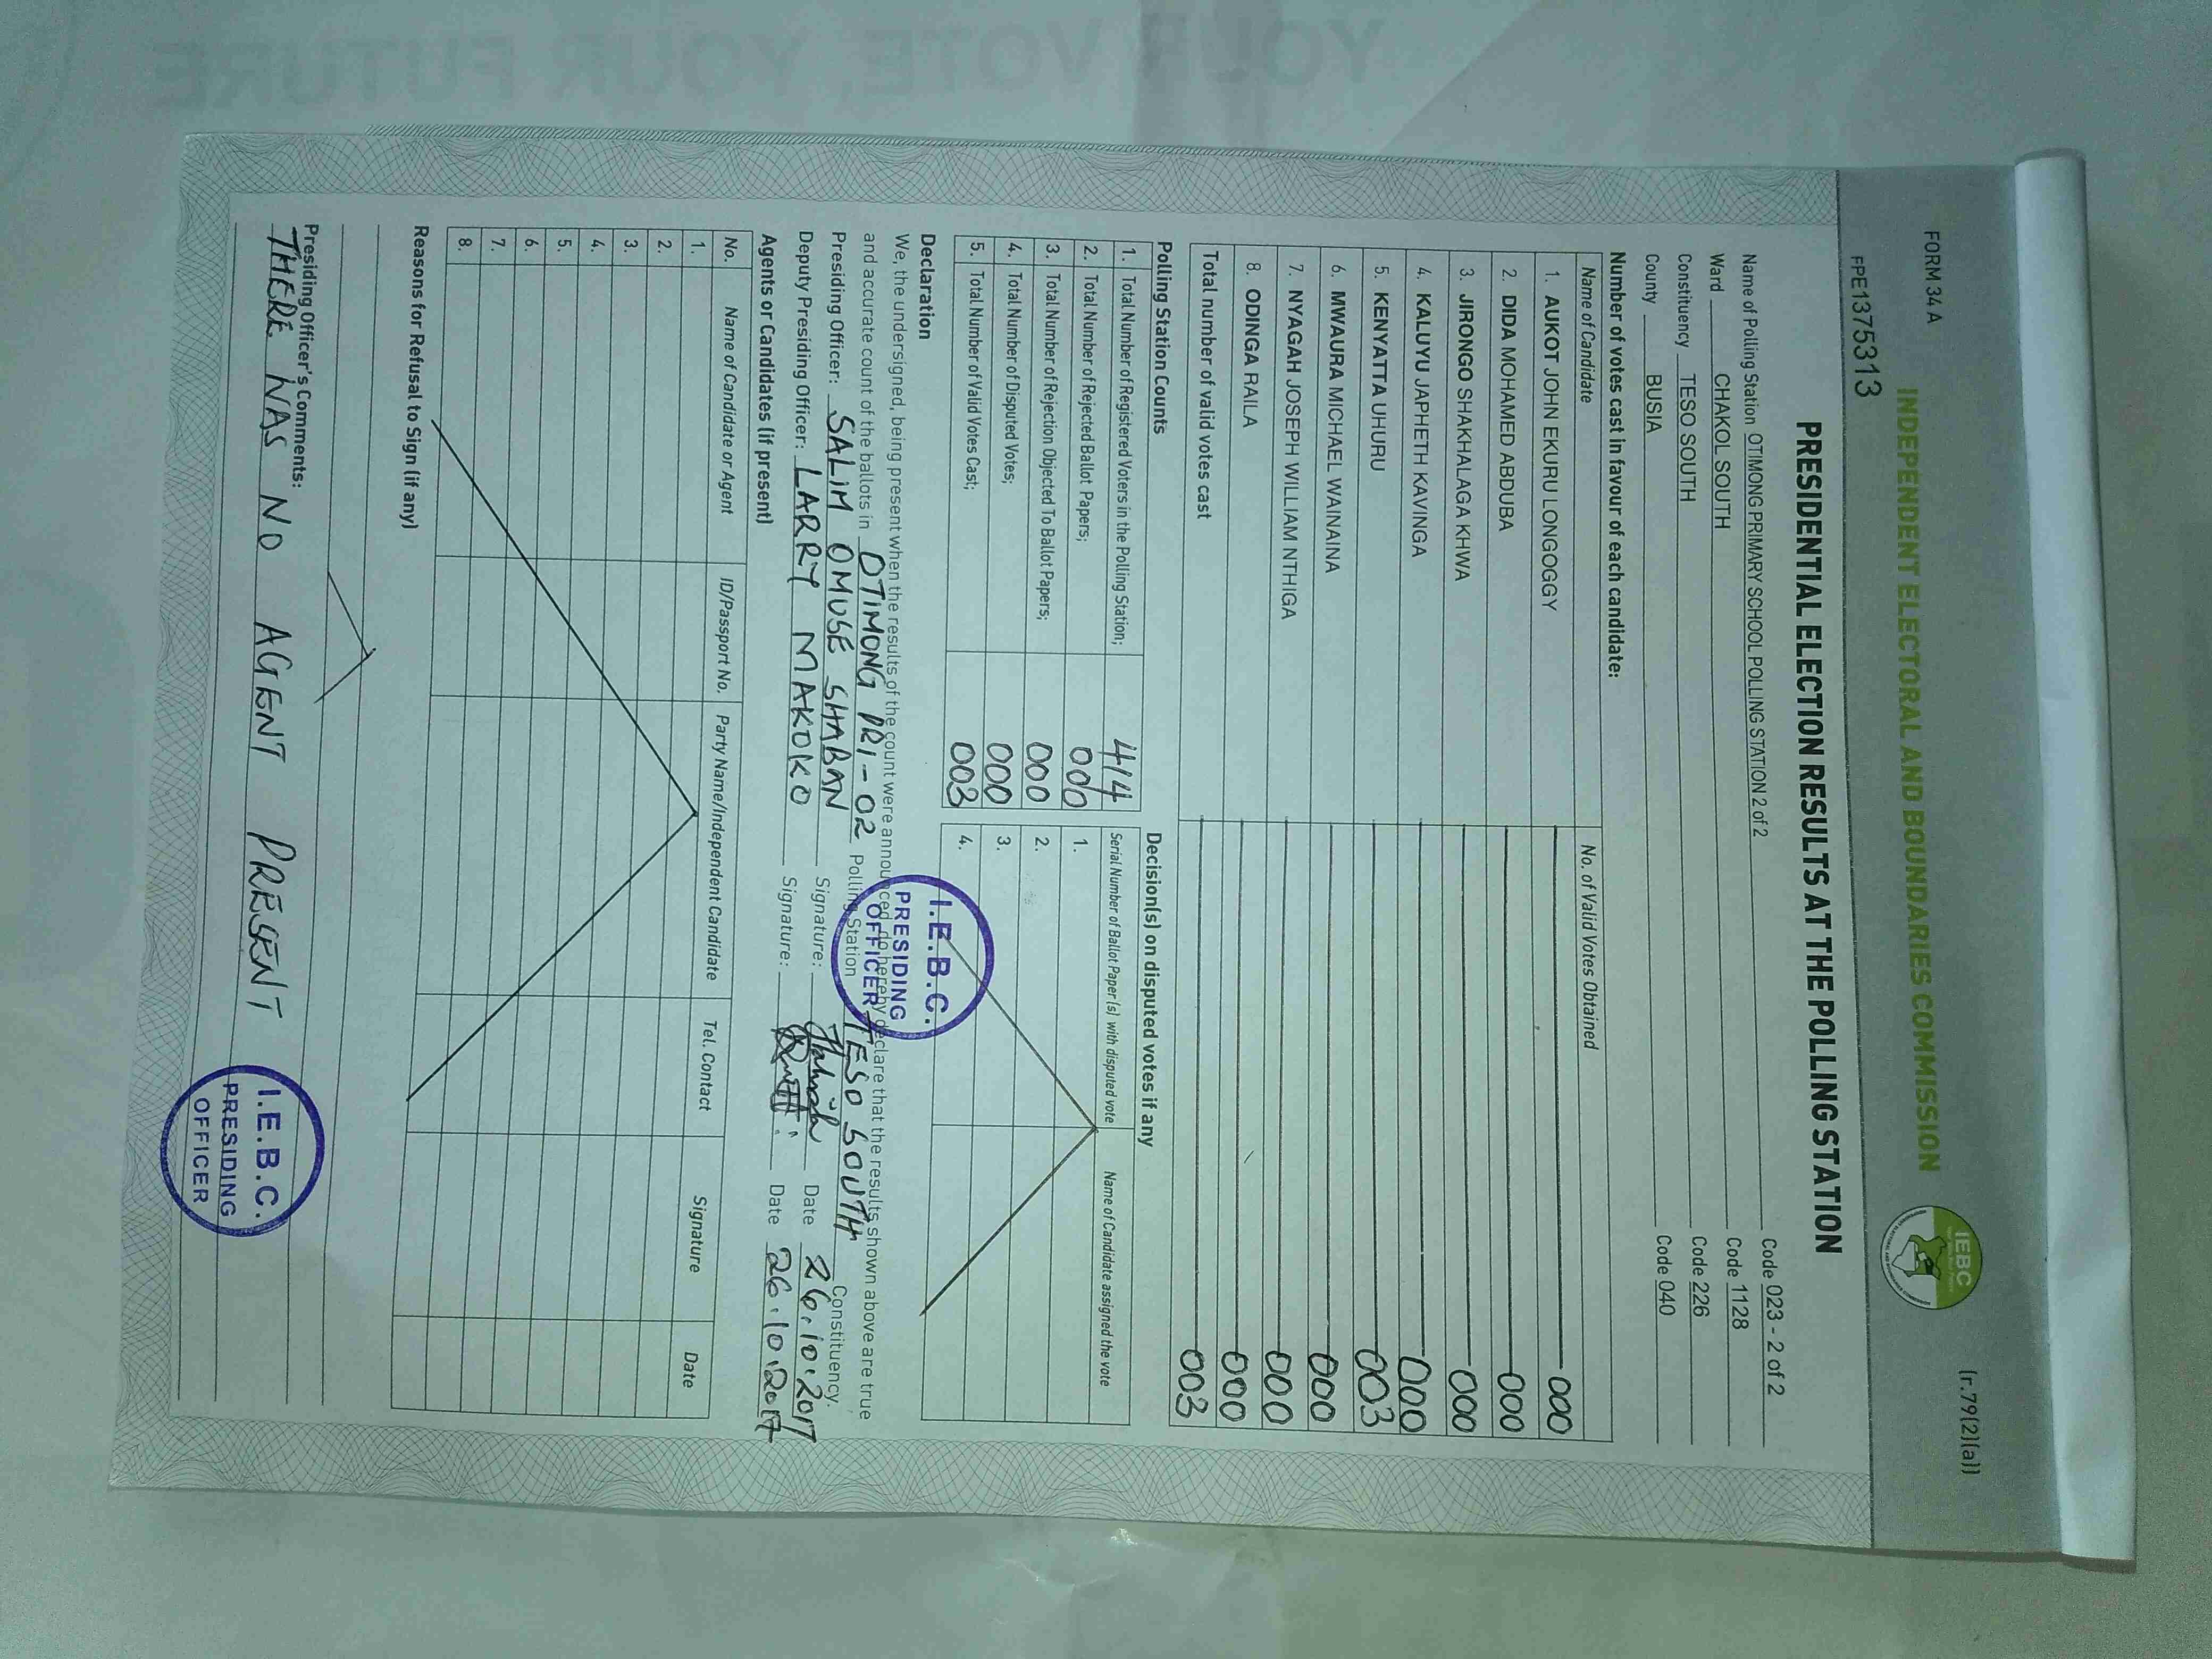 YOUR VOTE, YOUR FUTURE
FORM 34 A
(r.79(2)(a))
INDEPENDENT ELECTORAL AND BOUNDARIES COMMISSION
IEBC
FPE1375313
PRESIDENTIAL ELECTION RESULTS AT THE POLLING STATION
Name of Polling Station OTIMONG PRIMARY SCHOOL POLLING STATION 2 of 2 Code 023 - 2 of 2
Ward CHAKOL SOUTH Code 1128
Constituency TESO SOUTH Code 226
County BUSIA Code 040
Number of votes cast in favour of each candidate:
Name of Candidate No. of Valid Votes Obtained
1. AUKOT JOHN EKURU LONGOGGY 000
2. DIDA MOHAMED ABDUBA 000
3. JIRONGO SHAKHALAGA KHWA 000
4. KALUYU JAPHETH KAVINGA 000
5. KENYATTA UHURU 003
6. MWAURA MICHAEL WAINAINA 000
7. NYAGAH JOSEPH WILLIAM NTHIGA 000
8. ODINGA RAILA 000
Total number of valid votes cast 003
Polling Station Counts
1. Total Number of Registered Voters in the Polling Station; 414
2. Total Number of Rejected Ballot Papers; 000
3. Total Number of Rejection Objected To Ballot Papers; 000
4. Total Number of Disputed Votes; 000
5. Total Number of Valid Votes Cast; 003
Decision(s) on disputed votes if any
Serial Number of Ballot Paper(s) with disputed vote Name of Candidate assigned the vote
1.
2.
3.
4.
Declaration
We, the undersigned, being present when the results of the count were announced, do hereby declare that the results shown above are true
and accurate count of the ballots in OTIMONG PRI - 02 Polling Station TESO SOUTH Constituency.
Presiding Officer: SALIM OMUSE SHABAN Signature: Date 26.10.2017
Deputy Presiding Officer: LARRY MAKOKO Signature: Date 26.10.2017
I.E.B.C.
PRESIDING
OFFICER
Agents or Candidates (if present)
No. Name of Candidate or Agent ID/Passport No. Party Name/Independent Candidate Tel. Contact Signature Date
1.
2.
3.
4.
5.
6.
7.
8.
Reasons for Refusal to Sign (if any)
Presiding Officer's Comments:
THERE WAS NO AGENT PRESENT
I.E.B.C.
PRESIDING
OFFICER